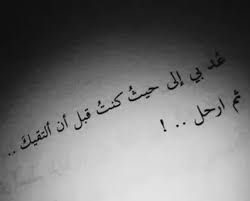 عُد بي إلى حيثُ كنتُ قبل أن ألتقيكَ ..
ثم ارحل .. !